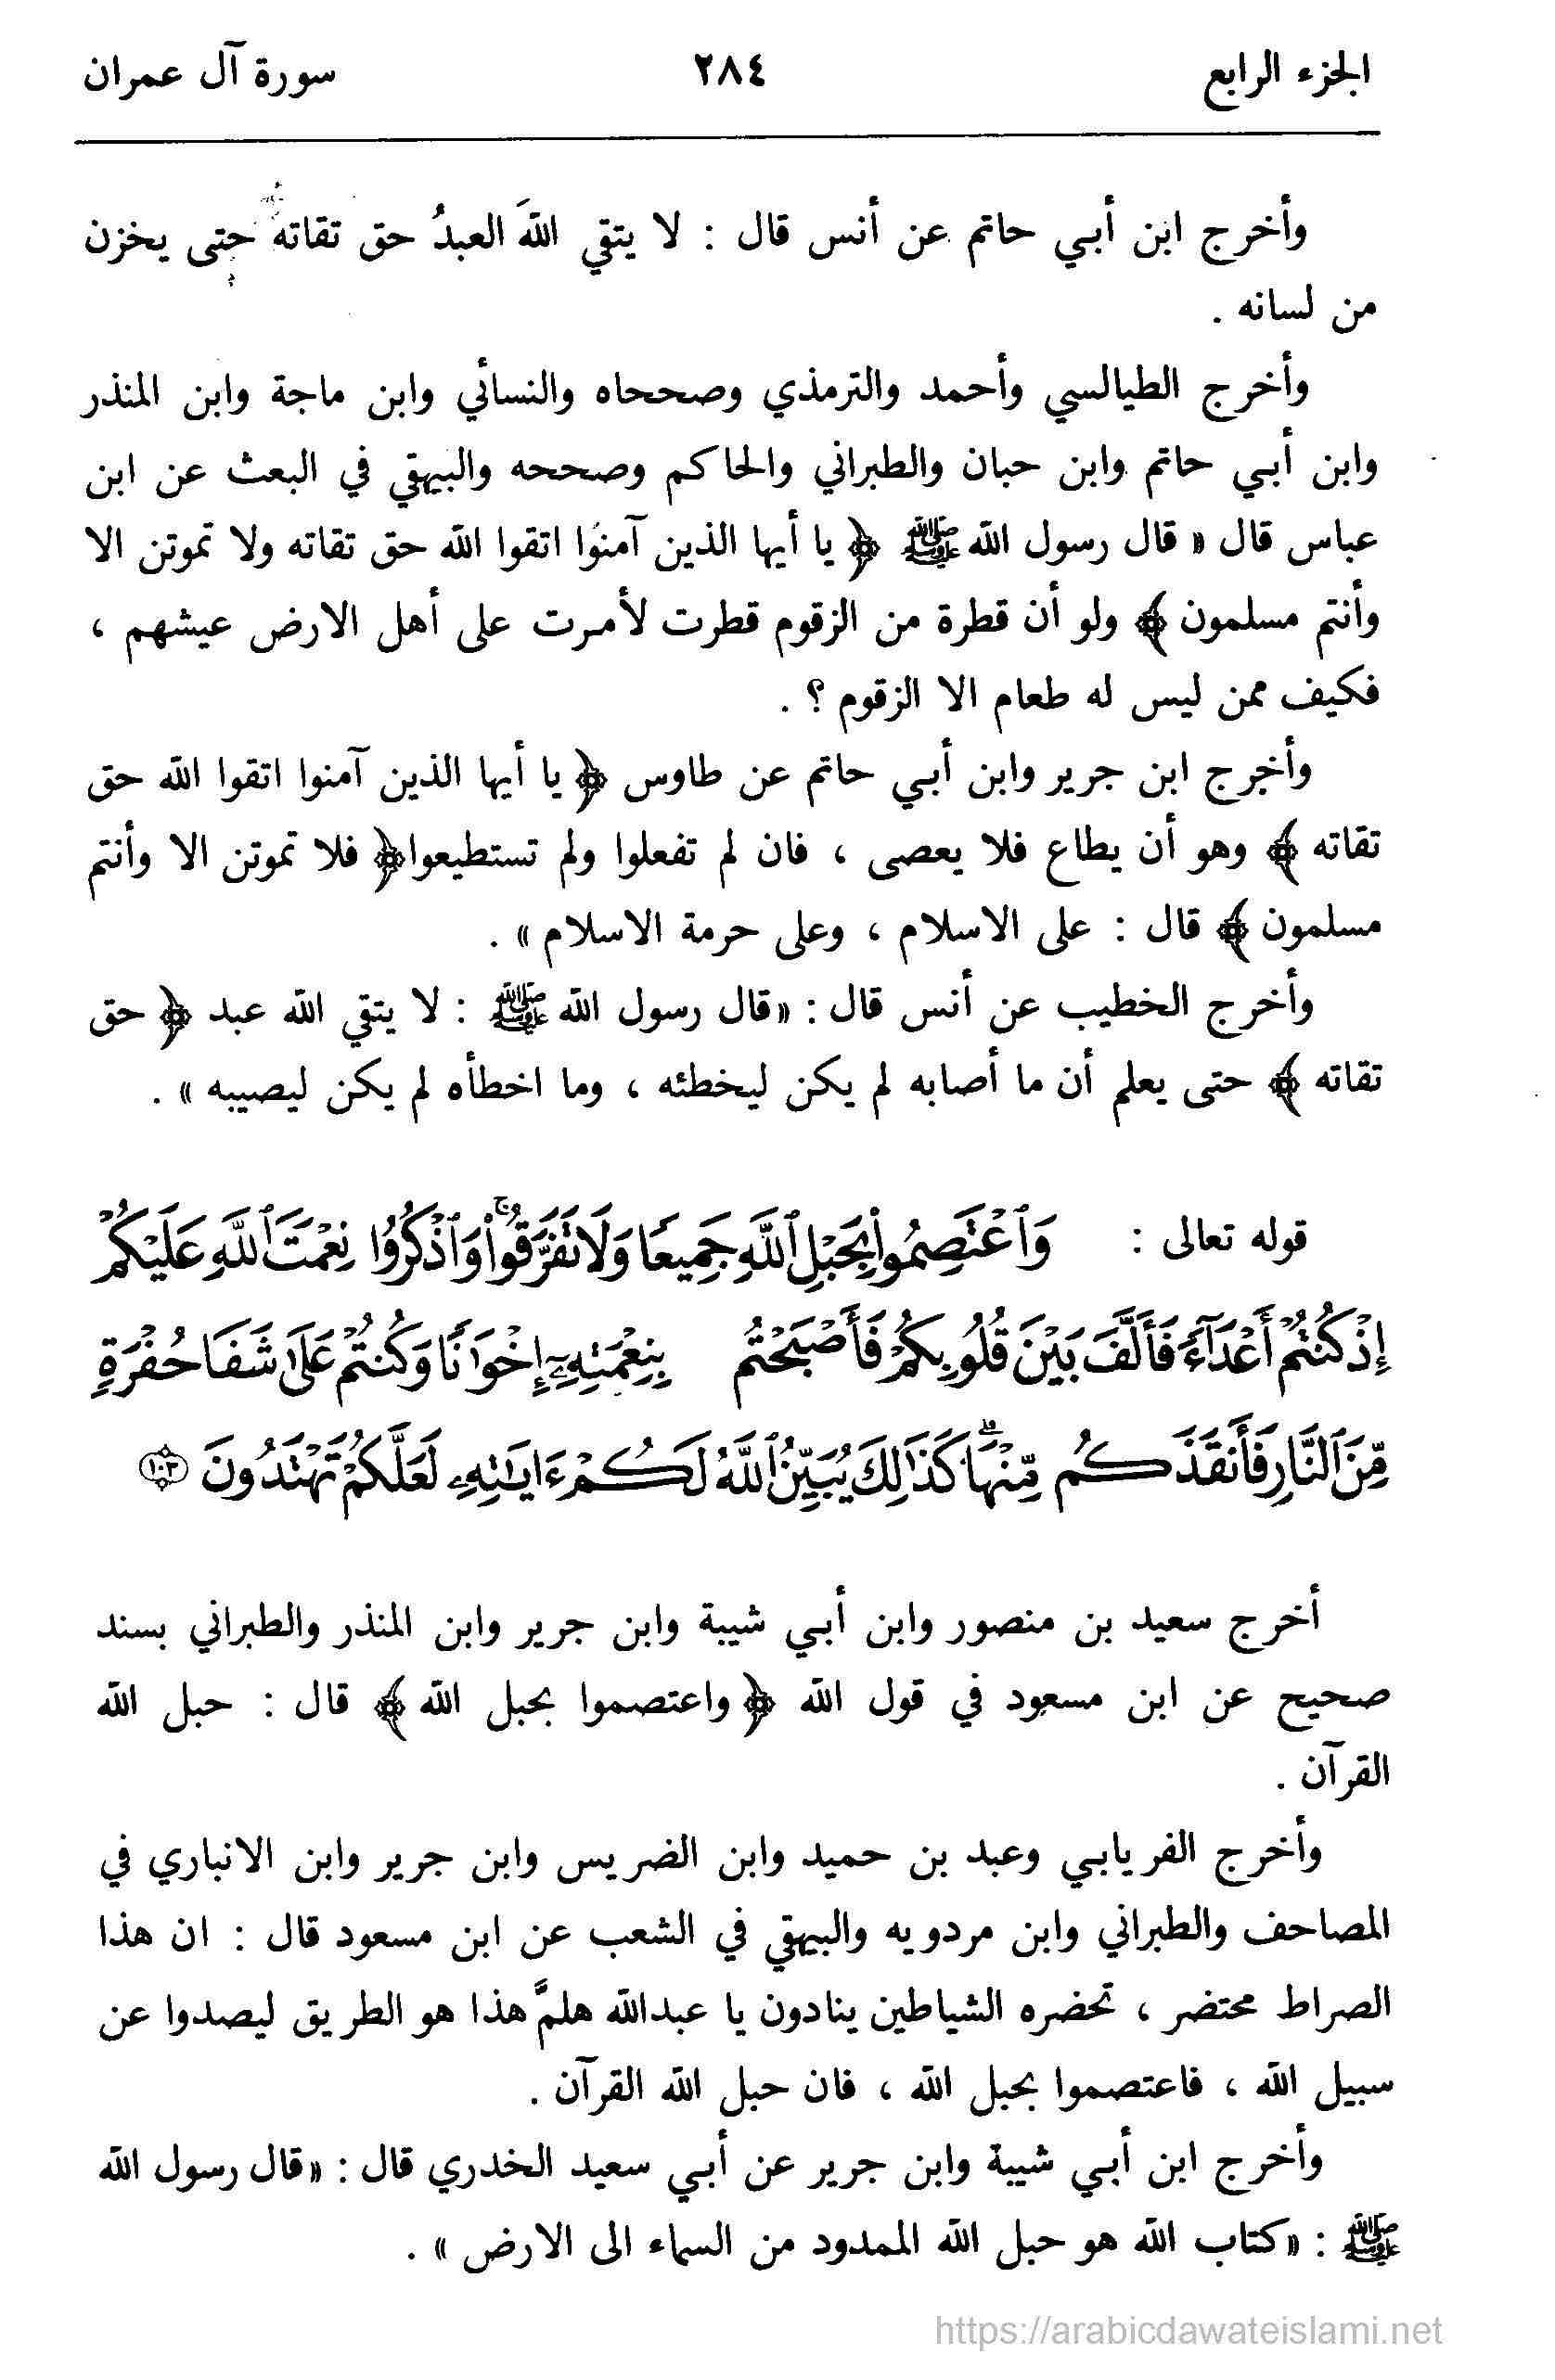 الجزء الرابع ٢٨٤ سورة آل عمران
وأخرج ابن أبي حاتم عن أنس قال : لا يتقي اللهَ العبدُ حق تقاته حتى يخزن
من لسانه .
وأخرج الطيالسي وأحمد والترمذي وصححاه والنسائي وابن ماجة وابن المنذر
وابن أبي حاتم وابن حبان والطبراني والحاكم وصححه والبيهقي في البعث عن ابن
عباس قال « قال رسول الله ﷺ ﴿ يا أيها الذين آمنوا اتقوا الله حق تقاته ولا تموتن الا
وأنتم مسلمون ﴾ ولو أن قطرة من الزقوم قطرت لأمرت على أهل الارض عيشهم ،
فكيف ممن ليس له طعام الا الزقوم ؟ .
وأخرج ابن جرير وابن أبي حاتم عن طاوس ﴿ يا أيها الذين آمنوا اتقوا الله حق
تقاته ﴾ وهو أن يطاع فلا يعصى ، فان لم تفعلوا ولم تستطيعوا ﴿ فلا تموتن الا وأنتم
مسلمون ﴾ قال : على الاسلام ، وعلى حرمة الاسلام » .
وأخرج الخطيب عن أنس قال : « قال رسول الله ﷺ : لا يتقي الله عبد ﴿ حق
تقاته ﴾ حتى يعلم أن ما أصابه لم يكن ليخطئه ، وما اخطأه لم يكن ليصيبه » .
قوله تعالى : وَٱعْتَصِمُوا۟ بِحَبْلِ ٱللَّهِ جَمِيعًا وَلَا تَفَرَّقُوا۟ ۚ وَٱذْكُرُوا۟ نِعْمَتَ ٱللَّهِ عَلَيْكُمْ
إِذْ كُنتُمْ أَعْدَآءً فَأَلَّفَ بَيْنَ قُلُوبِكُمْ فَأَصْبَحْتُم بِنِعْمَتِهِۦٓ إِخْوَٰنًا وَكُنتُمْ عَلَىٰ شَفَا حُفْرَةٍ
مِّنَ ٱلنَّارِ فَأَنقَذَكُم مِّنْهَا ۗ كَذَٰلِكَ يُبَيِّنُ ٱللَّهُ لَكُمْ ءَايَٰتِهِۦ لَعَلَّكُمْ تَهْتَدُونَ ١٠٣
أخرج سعيد بن منصور وابن أبي شيبة وابن جرير وابن المنذر والطبراني بسند
صحيح عن ابن مسعود في قول الله ﴿ واعتصموا بحبل الله ﴾ قال : حبل الله
القرآن .
وأخرج الفريابي وعبد بن حميد وابن الضريس وابن جرير وابن الانباري في
المصاحف والطبراني وابن مردويه والبيهقي في الشعب عن ابن مسعود قال : ان هذا
الصراط محتضر ، تحضره الشياطين ينادون يا عبدالله هلمَّ هذا هو الطريق ليصدوا عن
سبيل الله ، فاعتصموا بحبل الله ، فان حبل الله القرآن .
وأخرج ابن أبي شيبة وابن جرير عن أبي سعيد الخدري قال : « قال رسول الله
ﷺ : « كتاب الله هو حبل الله الممدود من السماء الى الارض » .
https://arabicdawateislami.net